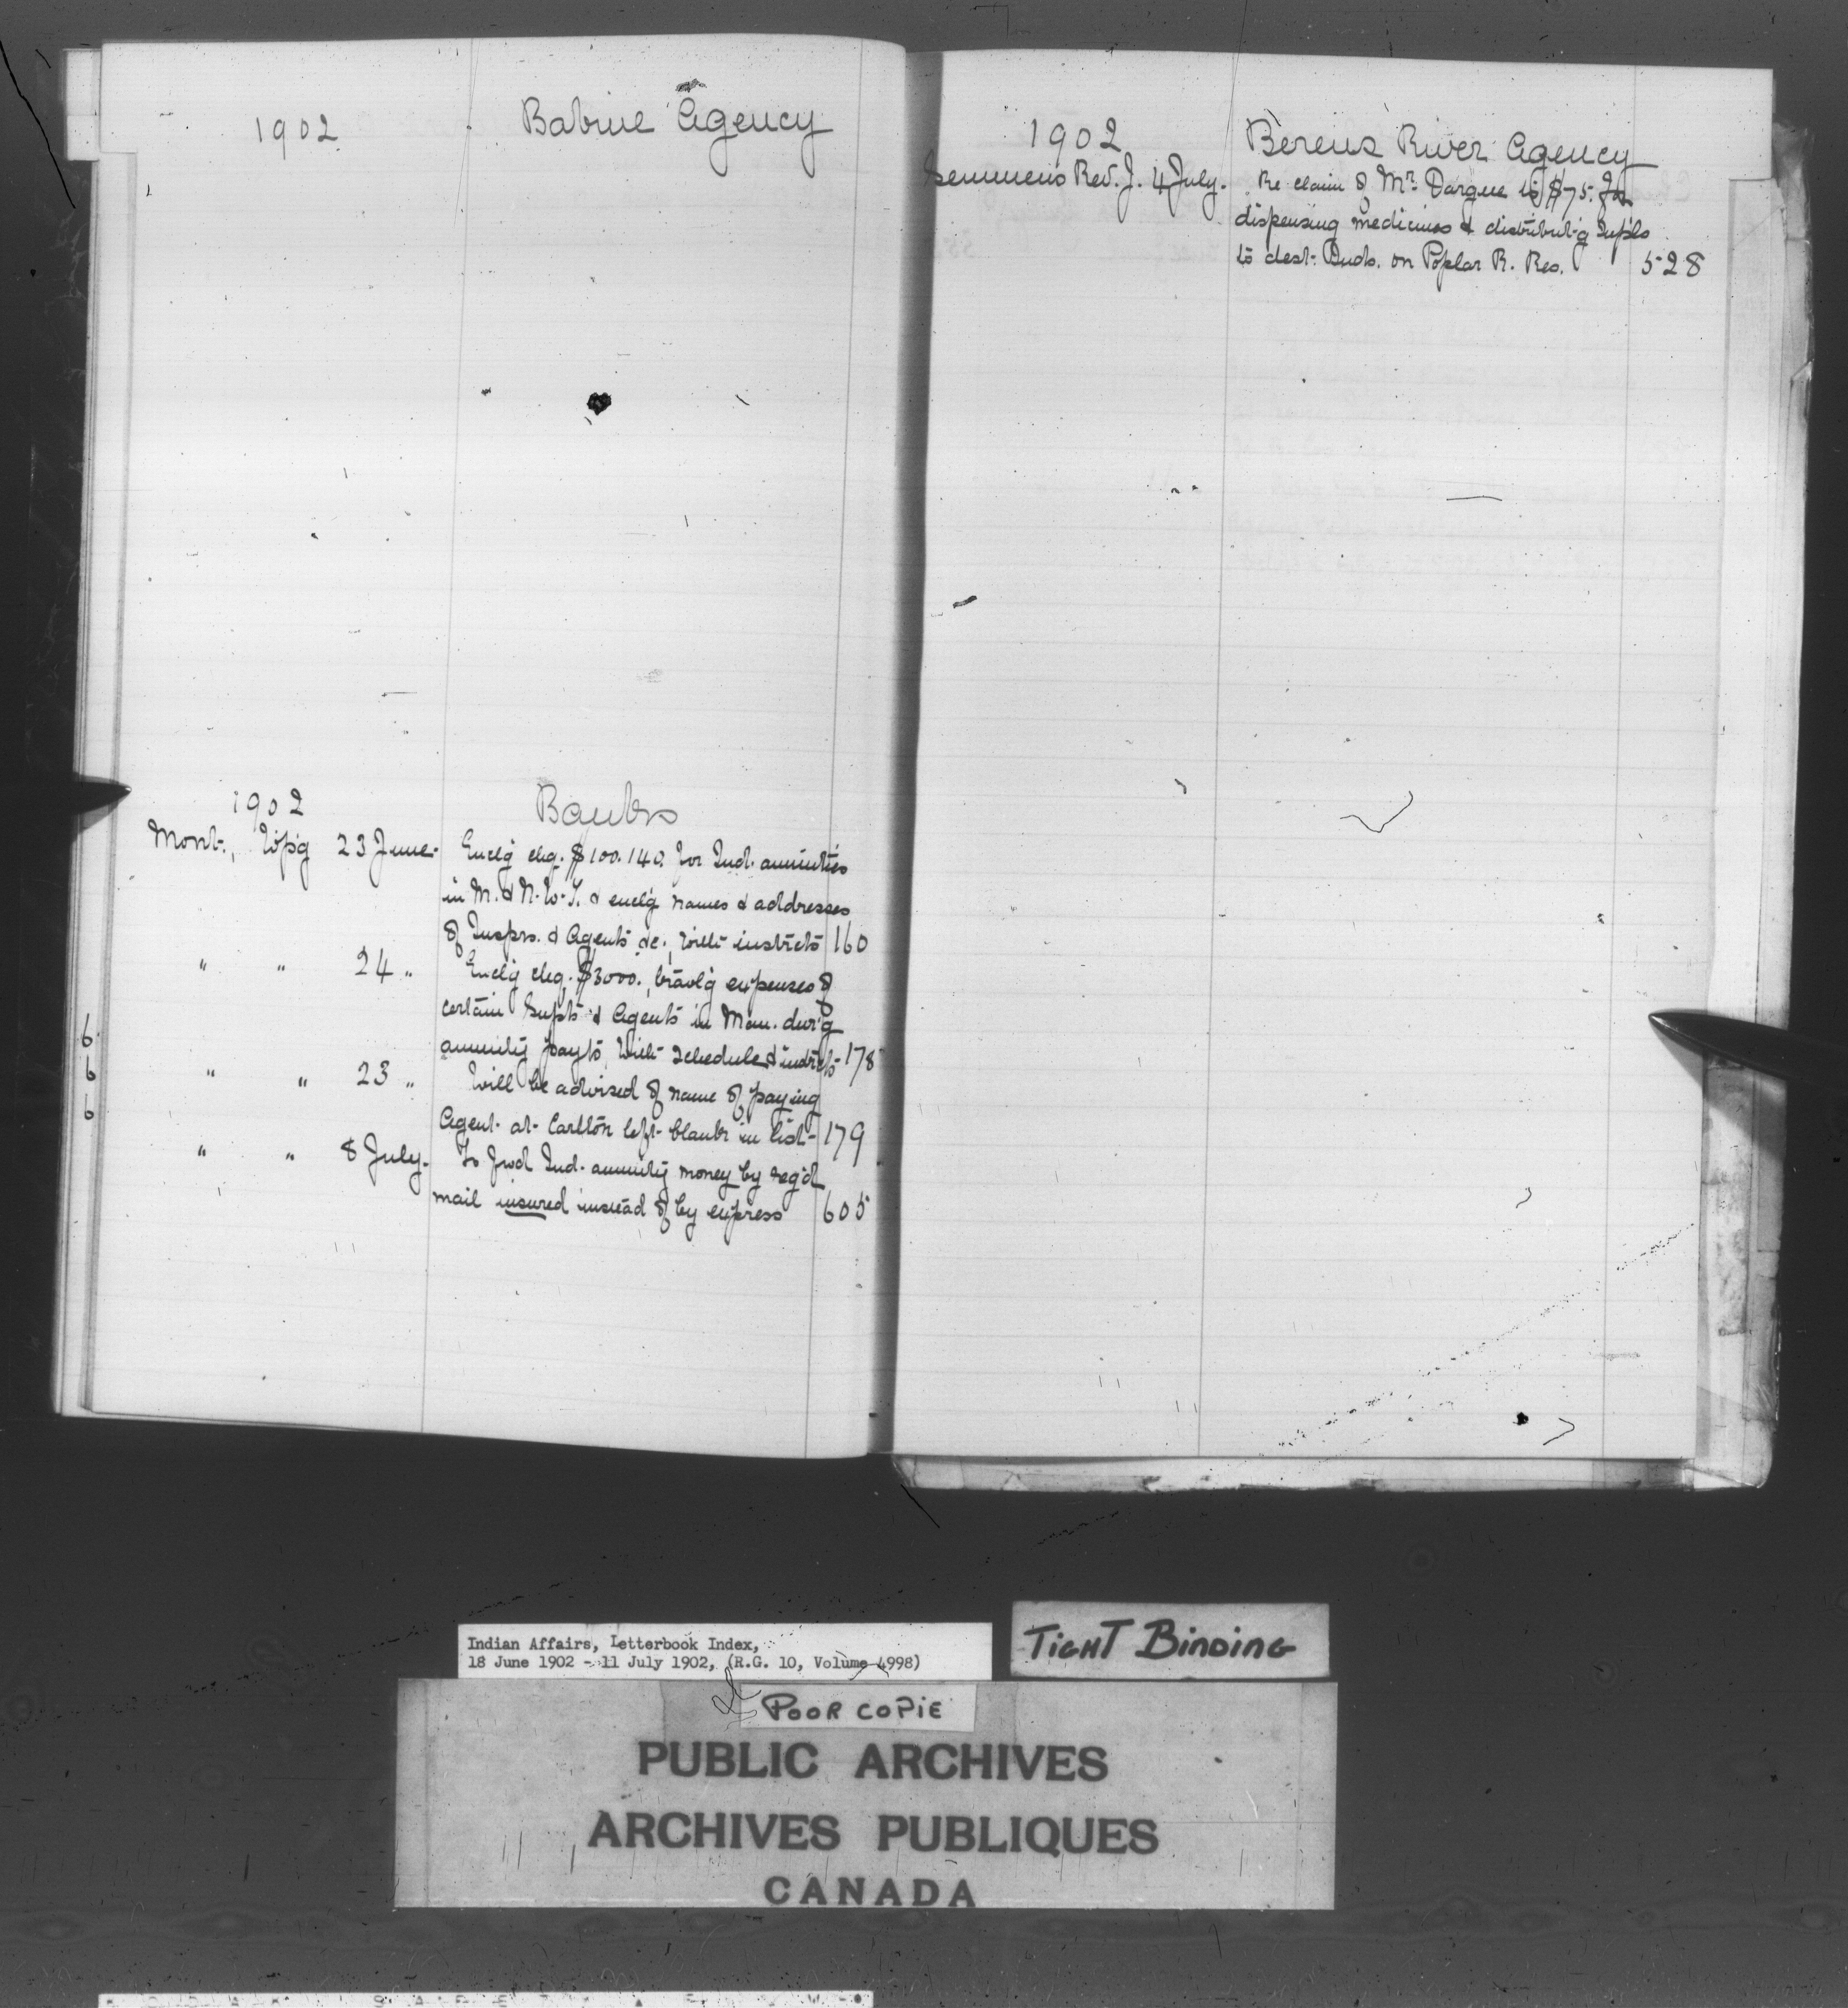 1902 Babine Agency
1902 Banks
Mont., Wpg 23 June. Enclg chq. $100.140. for Ind. annuities
in M. & N.W.T. & enclg names & addresses
of Insprs. & Agents &c., with instrcts 160
" " 24 " Enclg chq. $3000., travlg expenses of
certain Supts & Agents in Man. dur'g
annuity payts, with schedule & instrcts 178
" " 23 " Will be advised of name of paying
Agent at Carlton left blank in list 179
" " 8 July. To fwd Ind. annuity money by reg'd
mail insured instead of by express 605
6
6
6
1902 Berens River Agency
Semmens Rev. J. 4 July. Re claim of Mr. Dargue to $75. for
dispensing medicines & distribut-g Supls
to dest. Inds. on Poplar R. Res. 528
Indian Affairs, Letterbook Index,
18 June 1902 - 11 July 1902, (R.G. 10, Volume 4998)
TIGHT BINDING
POOR COPIE
PUBLIC ARCHIVES
ARCHIVES PUBLIQUES
CANADA